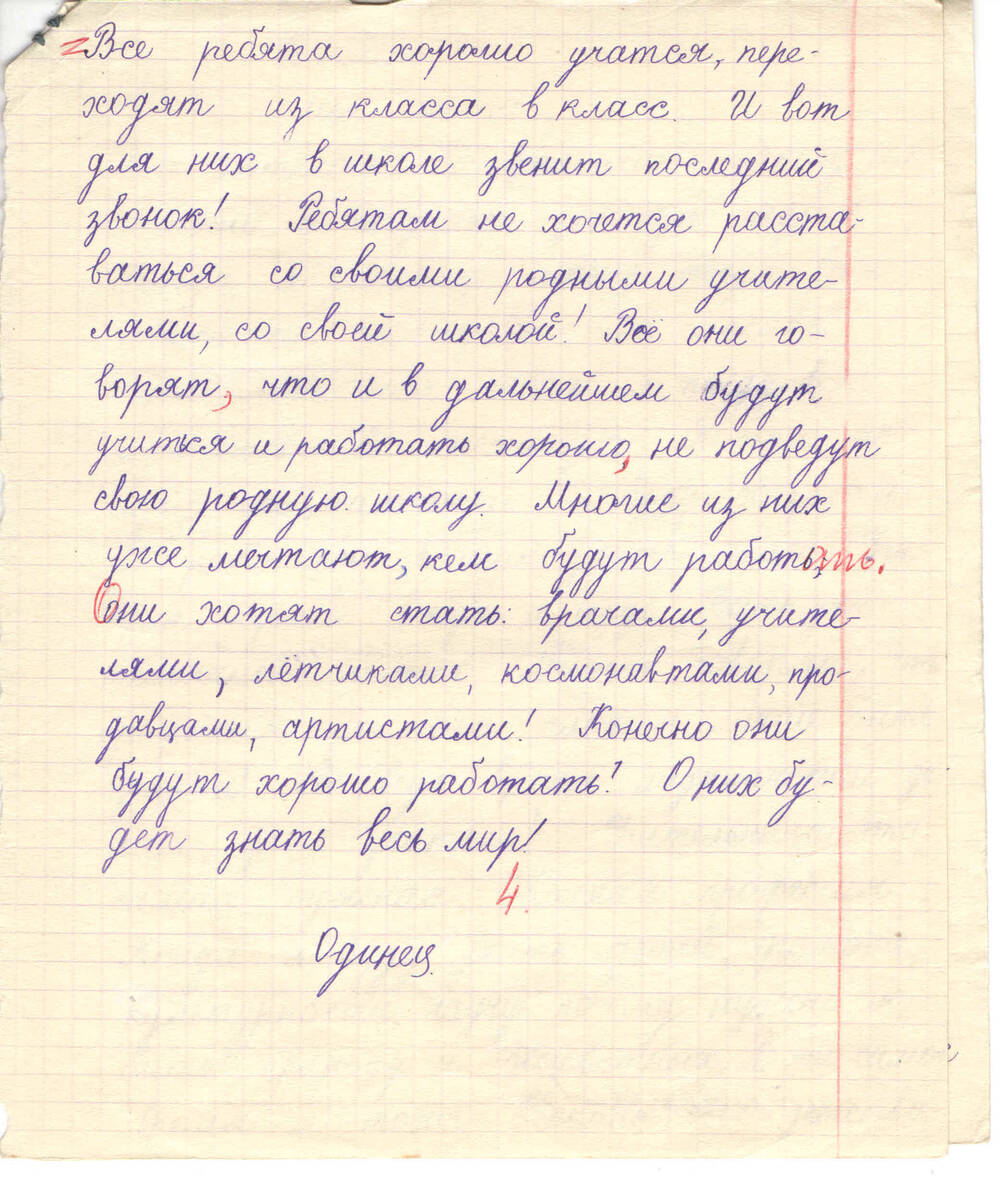 Все ребята хорошо учатся, пере-
ходят из класса в класс. И вот
для них в школе звенит последний
звонок! Ребятам не хочется расста-
ваться со своими родными учите-
лями, со своей школой! Всё они го-
ворят, что и в дальнейшем будут
учиться и работать хорошо, не подведут
свою родную школу. Многие из них
уже мечтают, кем будут работать.
Они хотят стать: врачами, учите-
лями, лётчиками, космонавтами, про-
давцами, артистами! Конечно они
будут хорошо работать! О них бу-
дет знать весь мир!
4.
Одинец.